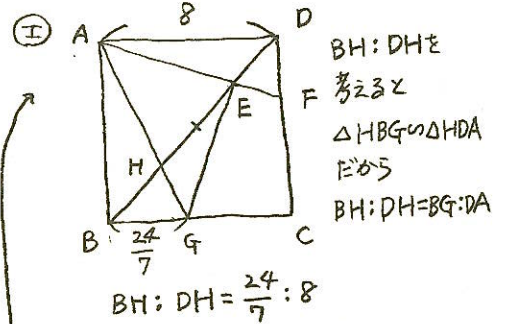 Ⓘ
8
A
D
E
F
H
B
24/7
G
C
BH:DHを
考えると
△HBG∽△HDA
だから
BH:DH=BG:DA
BH:DH=24/7:8